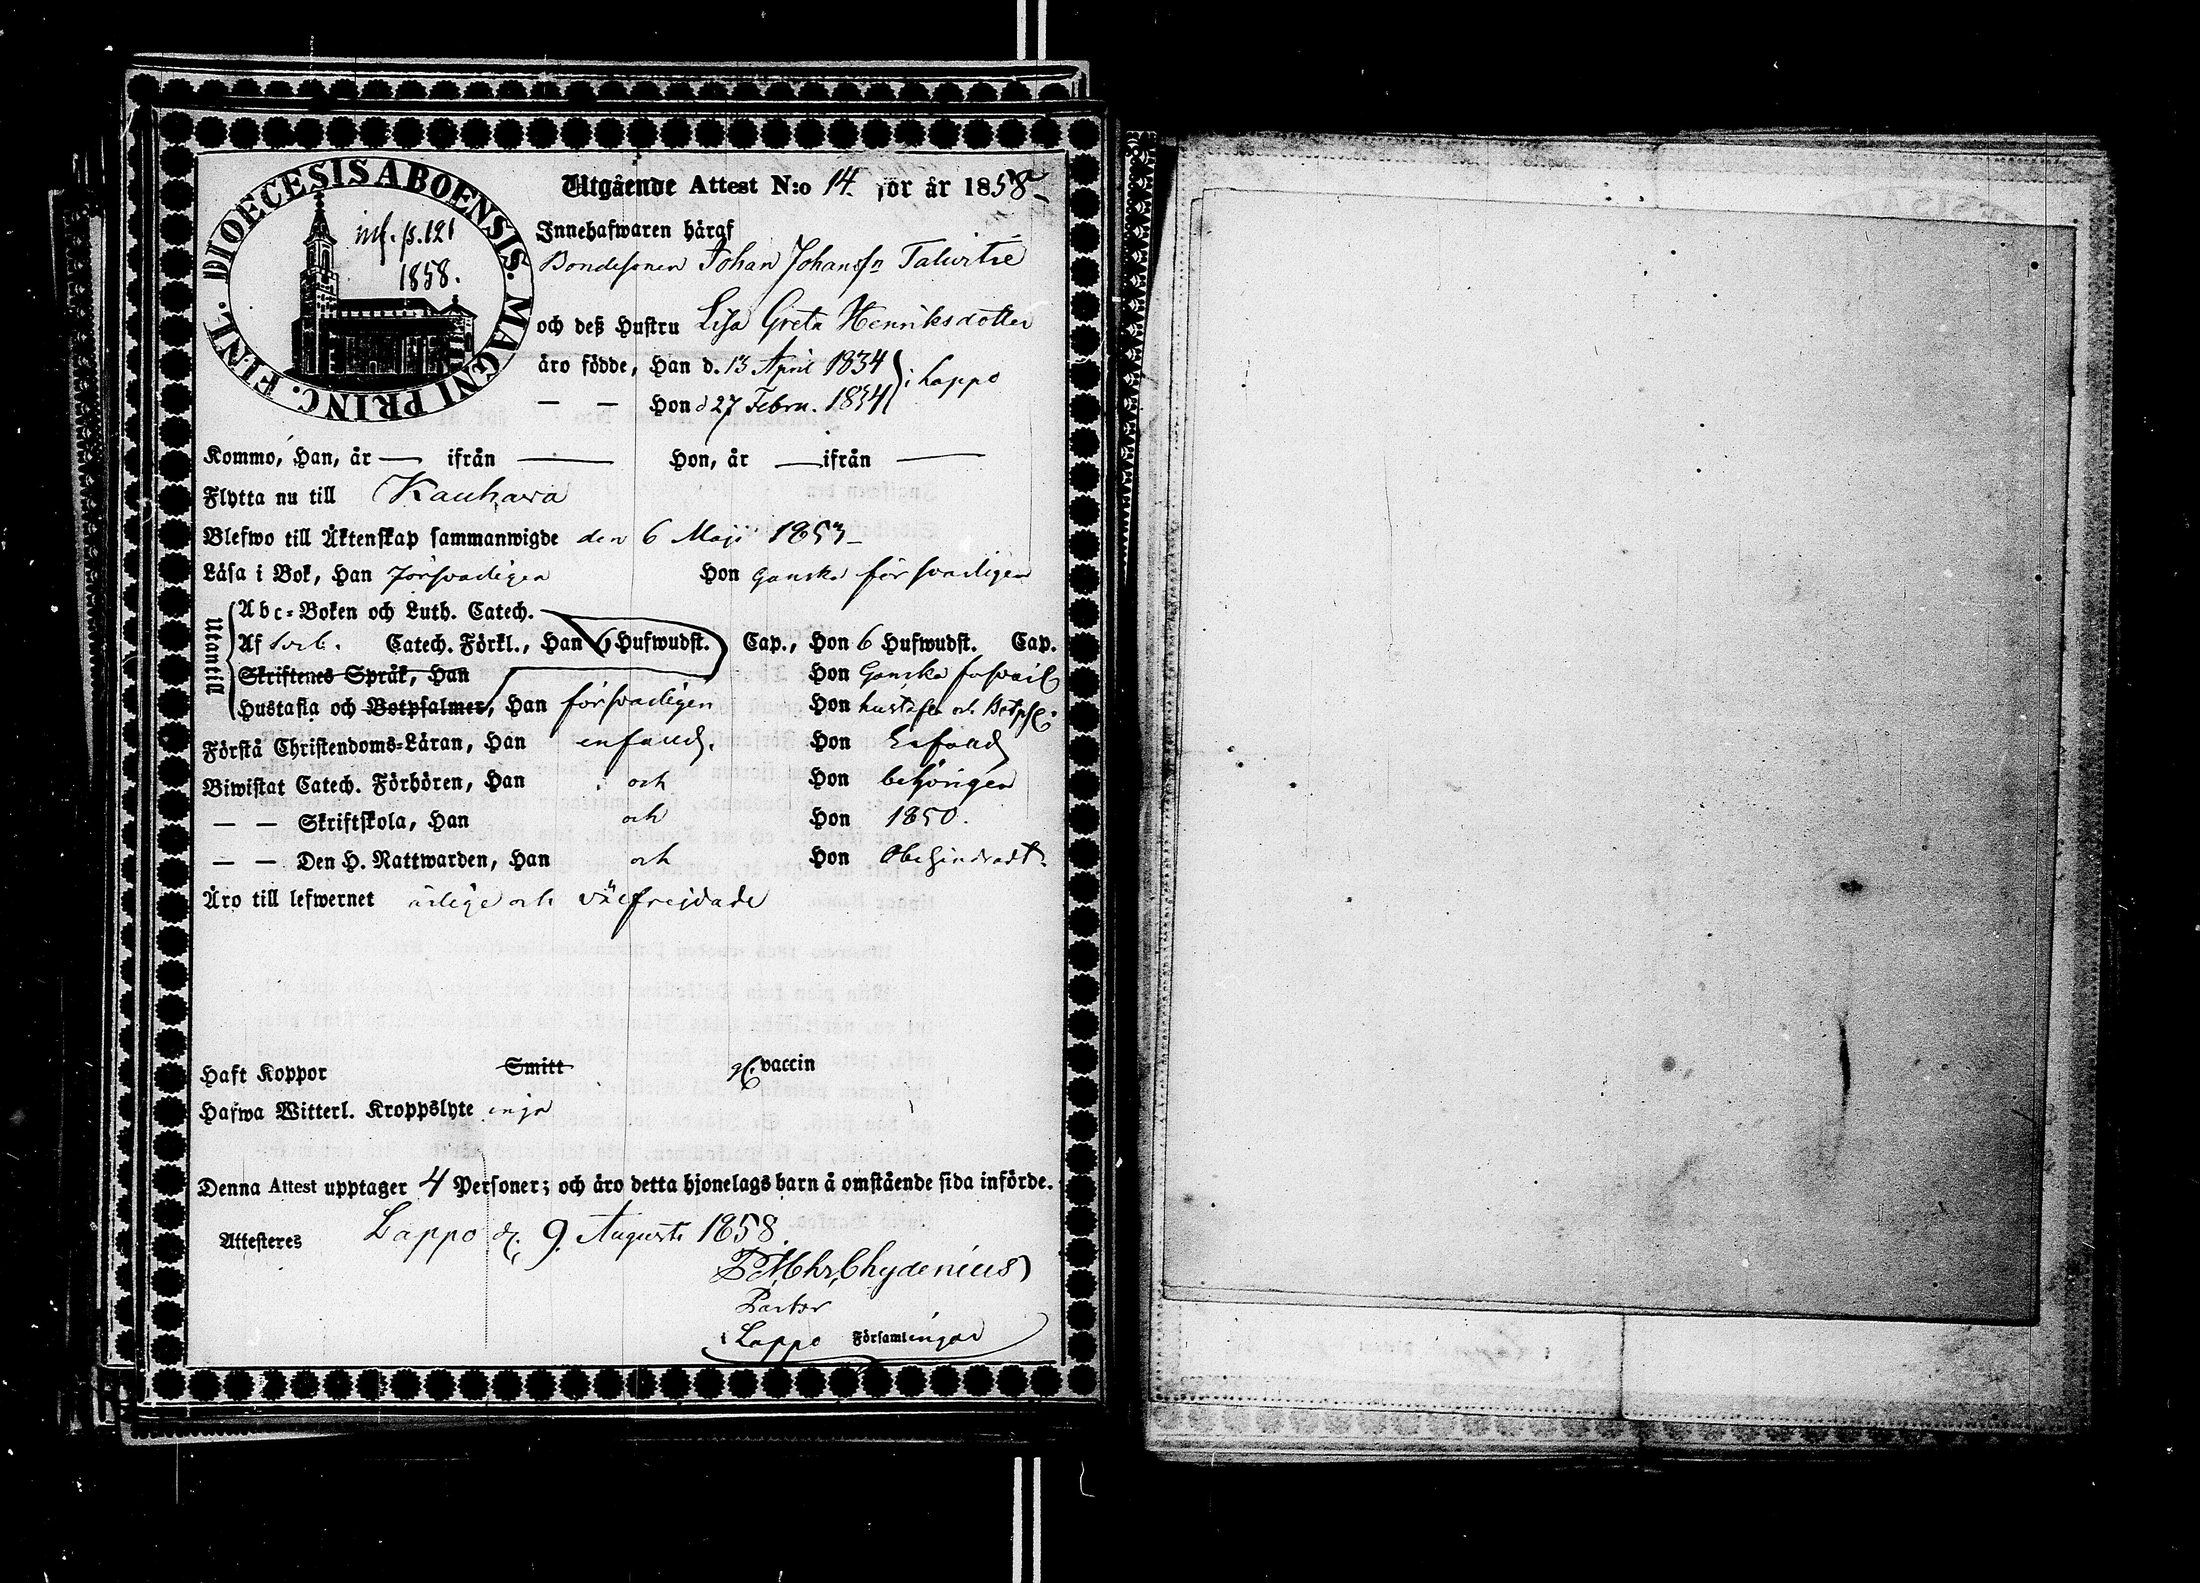 DIOECESIS ABOENSIS. MAGNI PRINC. FINL.
inf. p. 121
1858.
Utgående Attest N:o 14. för år 1858
Innehafwaren häraf
Bondesonen Johan Johansn Talvitie
och deß Hustru Lisa Greta Henriksdotter
äro födde, Han d. 13 April 1834
i Lappo
— — Hon d 27 Febru. 1834
Kommo, Han, år — ifrån — Hon, år — ifrån —
Flytta nu till Kauhava
Blefwo till Äktenskap sammanwigde den 6 Maji 1853
Läsa i Bok, Han försvarligen Hon Ganska försvarligen
Utantill
Abc-Boken och Luth. Catech.
Af Catech. Förkl., Han 6 Hufwudst. Cap., Hon 6 Hufwudst. Cap.
Skriftenes Språk, Han Hon Ganska
Hustafla och Botpsalmer, Han försvarligen Hon hustafla och Botps.
Förstå Christendoms-Läran, Han enfald. Hon Enfald
Biwistat Catech. Förhören, Han och Hon behörigen
— — Skriftskola, Han och Hon 1850.
— — Den H. Nattwarden, Han och Hon Obehindradt.
Äro till lefwernet ärlige och välfrejdade
Haft Koppor Smitt vaccin
Hafwa Witterl. Kroppslyte inga
Denna Attest upptager 4 Personer; och äro detta hjonelags barn å omstående sida införde.
Attesteras Lappo d. 9. Augusti 1858.
Chydenius
Pastor
i Lappo Församlingar